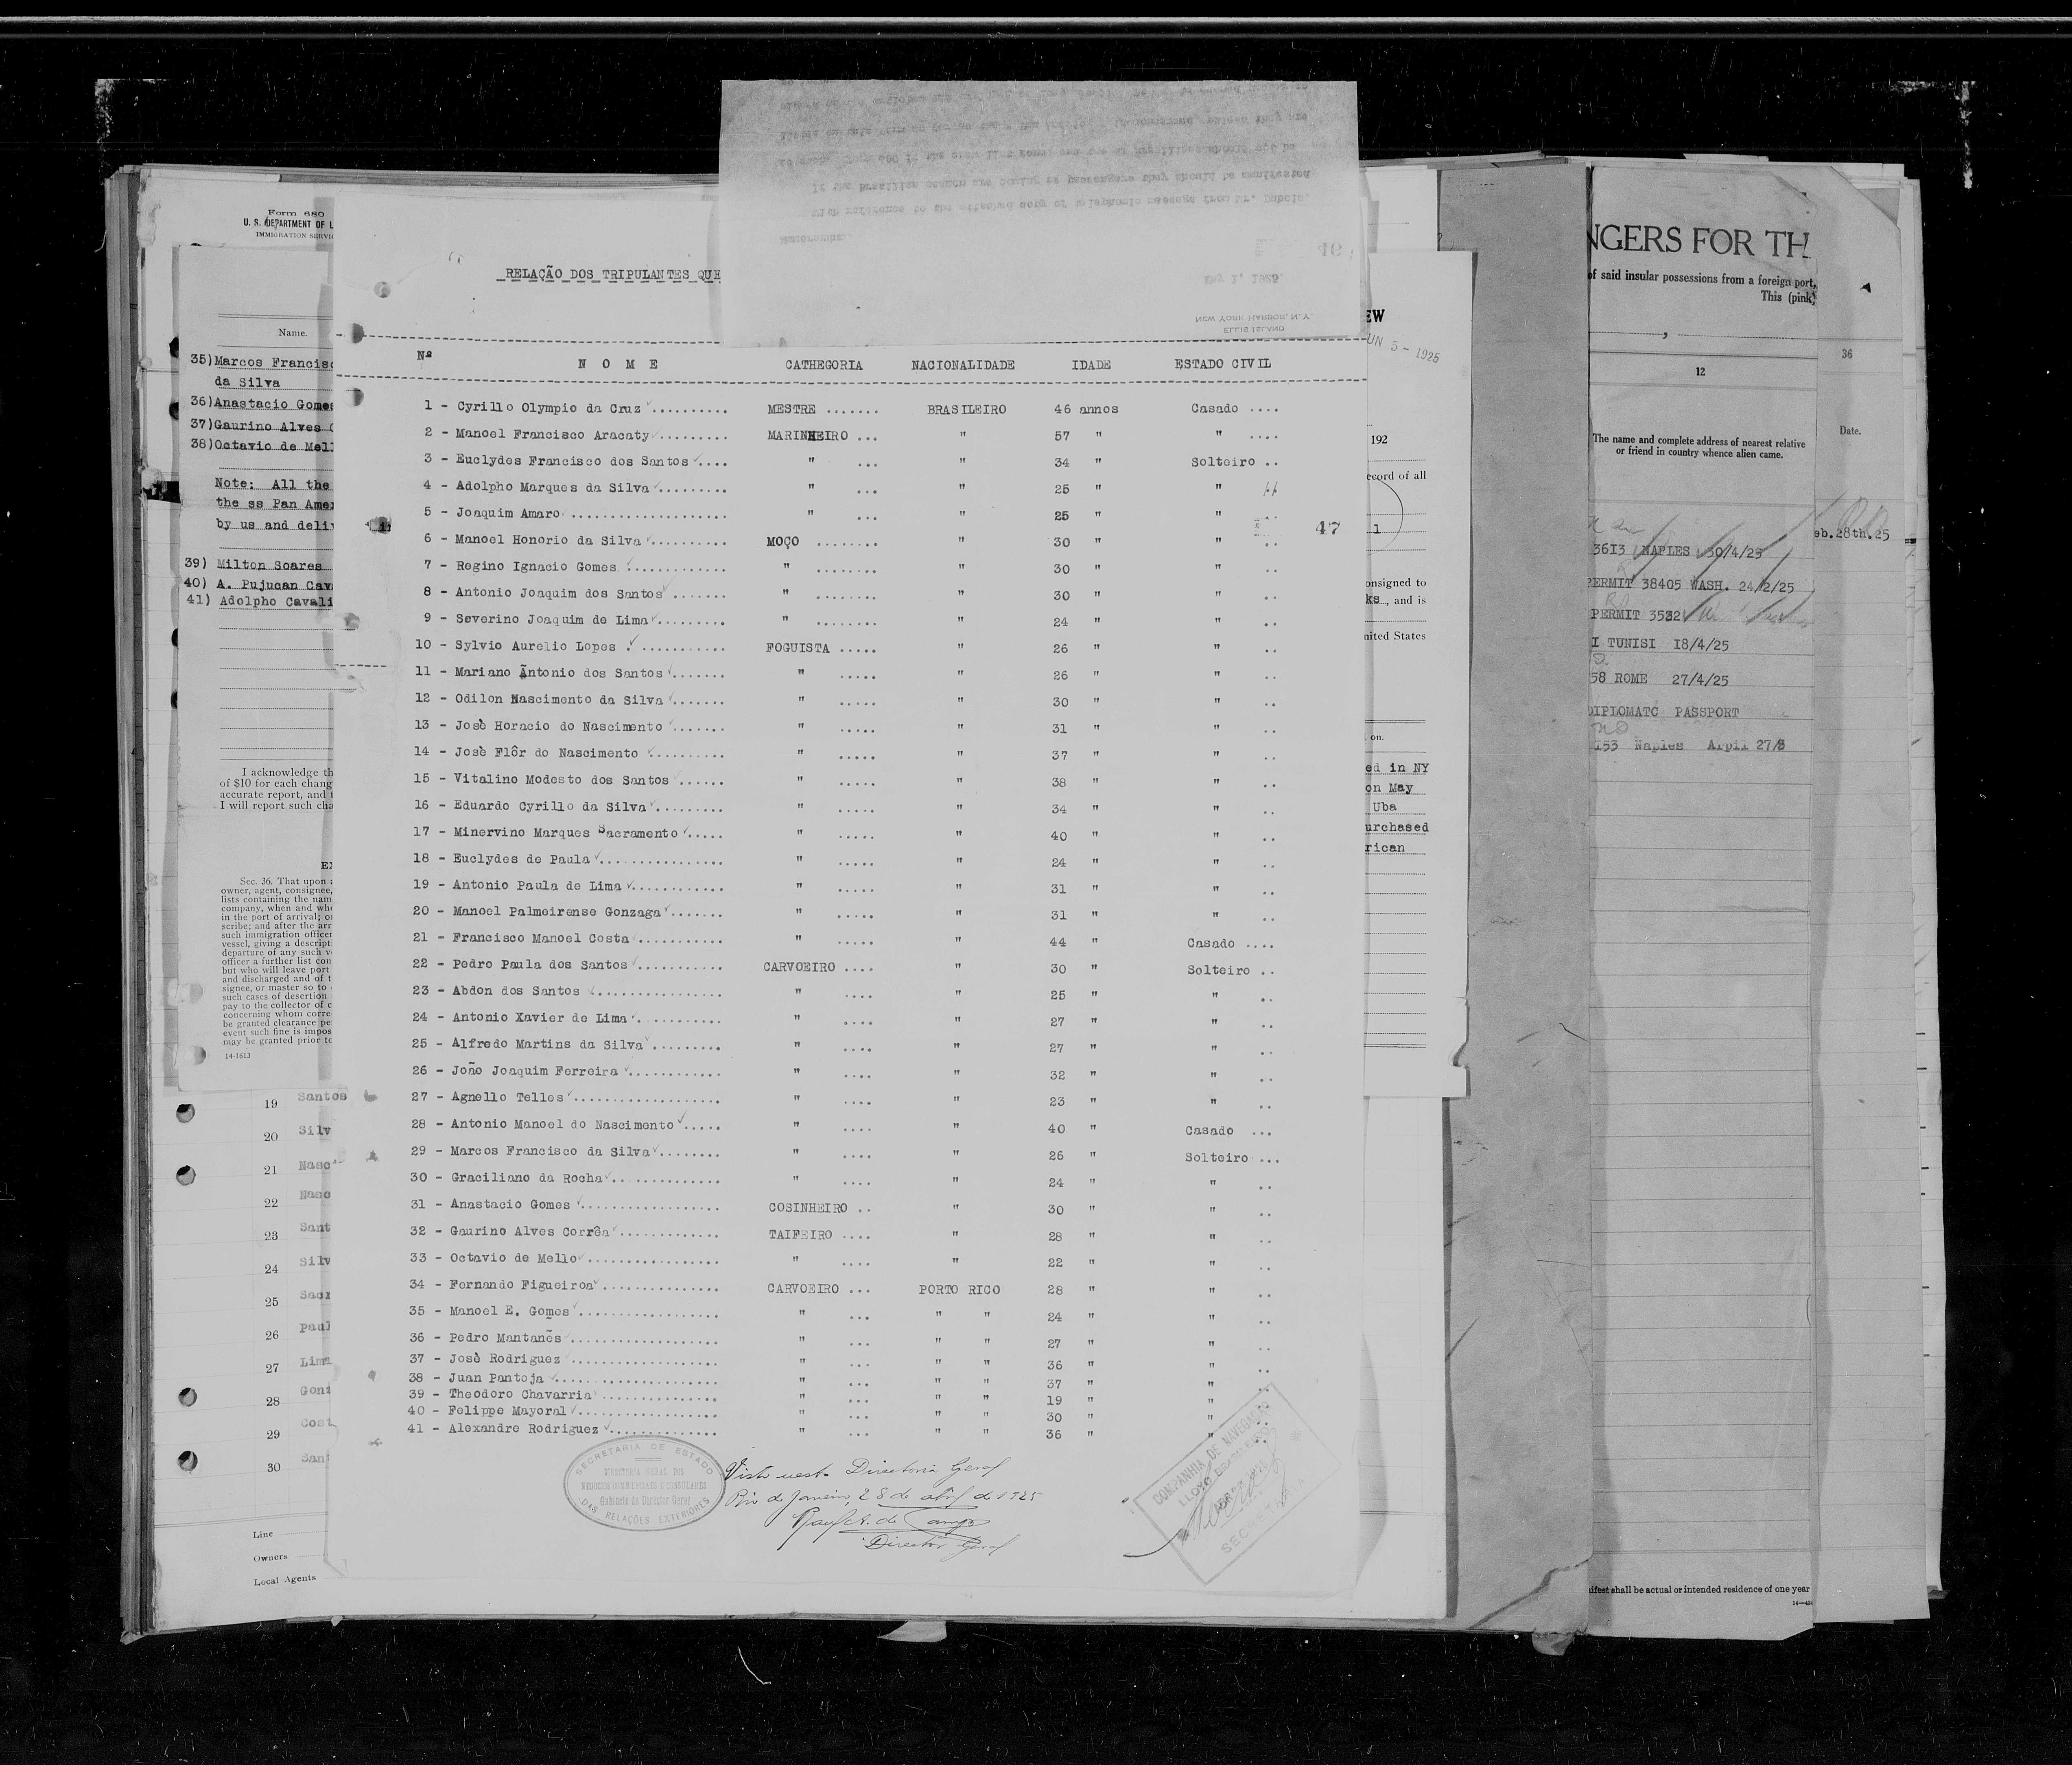 Form 680
U. S. DEPARTMENT OF L
IMMIGRATION SERVI
Name.
35) Marcos Francisc
da Silva
36) Anastacio Gomes
37) Gaurino Alves C
38) Octavio de Mell
Note: All the
the ss Pan Amer
by us and deliv
39) Milton Soares
40) A. Pujucan Cava
41) Adolpho Cavali
I acknowledge th
of $10 for each chang
accurate report, and t
I will report such cha
Sec. 36. That upon a
owner, agent, consignee,
lists containing the nam
company, when and whe
in the port of arrival; or
scribe; and after the arr
such immigration officer
vessel, giving a descript
departure of any such v
officer a further list con
but who will leave port
and discharged and of t
signee, or master so to
such cases of desertion
pay to the collector of c
concerning whom corre
be granted clearance pe
event such fine is impos
may be granted prior to
14-1613
19 Santos
20 Silv
21 Nasc
22 Nasc
23 Sant
24 Silv
25 Sacr
26 Paul
27 Lima
28 Gonz
29 Cost
30 Sant
Line
Owners
Local Agents
ELLIS ISLAND
NEW YORK HARBOR, N.Y.
May 1, 1925.
46
With reference to the attached copy of telephonic message from Mr.
If the Brazilian seamen are coming as passengers they should be manifested
RELAÇÃO DOS TRIPULANTES QUE
Nº N O M E CATHEGORIA NACIONALIDADE IDADE ESTADO CIVIL
1 - Cyrillo Olympio da Cruz .......... MESTRE ....... BRASILEIRO 46 annos Casado ....
2 - Manoel Francisco Aracaty ......... MARINHEIRO ... " 57 " " ....
3 - Euclydes Francisco dos Santos .... " ... " 34 " Solteiro ..
4 - Adolpho Marques da Silva ......... " ... " 25 " "
5 - Joaquim Amaro .................... " ... " 25 " " ..
6 - Manoel Honorio da Silva .......... MOÇO ........ " 30 " " ..
7 - Regino Ignacio Gomes ............. " ........ " 30 " " ..
8 - Antonio Joaquim dos Santos ....... " ........ " 30 " " ..
9 - Severino Joaquim de Lima ......... " ........ " 24 " " ..
10 - Sylvio Aurelio Lopes ............ FOGUISTA ..... " 26 " " ..
11 - Mariano Antonio dos Santos ....... " ..... " 26 " " ..
12 - Odilon Nascimento da Silva ....... " ..... " 30 " " ..
13 - Josè Horacio do Nascimento ....... " ..... " 31 " " ..
14 - Josè Flôr do Nascimento .......... " ..... " 37 " " ..
15 - Vitalino Modesto dos Santos ...... " ..... " 38 " " ..
16 - Eduardo Cyrillo da Silva ......... " ..... " 34 " " ..
17 - Minervino Marques Sacramento ..... " ..... " 40 " " ..
18 - Euclydes de Paula ................ " ..... " 24 " " ..
19 - Antonio Paula de Lima ............ " ..... " 31 " " ..
20 - Manoel Palmeirense Gonzaga ....... " ..... " 31 " " ..
21 - Francisco Manoel Costa ........... " ..... " 44 " Casado ....
22 - Pedro Paula dos Santos ........... CARVOEIRO .... " 30 " Solteiro ..
23 - Abdon dos Santos ................ " .... " 25 " " ..
24 - Antonio Xavier de Lima ........... " .... " 27 " " ..
25 - Alfredo Martins da Silva ......... " .... " 27 " " ..
26 - João Joaquim Ferreira ............ " .... " 32 " " ..
27 - Agnello Telles ................... " .... " 23 " " ..
28 - Antonio Manoel do Nascimento ..... " .... " 40 " Casado ...
29 - Marcos Francisco da Silva ........ " .... " 26 " Solteiro ...
30 - Graciliano da Rocha .............. " .... " 24 " " ..
31 - Anastacio Gomes .................. COSINHEIRO .. " 30 " " ..
32 - Gaurino Alves Corrêa ............. TAIFEIRO .... " 28 " " ..
33 - Octavio de Mello ................. " .... " 22 " " ..
34 - Fernando Figueiroa ............... CARVOEIRO ... PORTO RICO 28 " " ..
35 - Manoel E. Gomes .................. " ... " " 24 " " ..
36 - Pedro Mantanẽs ................... " ... " " 27 " " ..
37 - Josè Rodriguez ................... " ... " " 36 " " ..
38 - Juan Pantoja ..................... " ... " " 37 " " ..
39 - Theodoro Chavarria ............... " ... " " 19 " "
40 - Felippe Mayoral .................. " ... " " 30 " "
41 - Alexandre Rodriguez .............. " ... " " 36 " "
47
SECRETARIA DE ESTADO
DIRECTORIA GERAL DOS
NEGOCIOS COMMERCIAES E CONSULARES
Gabinete do Director Geral
DAS RELAÇÕES EXTERIORES
Visto nesta Directoria Geral
Rio de Janeiro, 28 de abril de 1925
Raul de Campos
Director Geral
COMPANHIA DE NAVEGAÇÃO
LLOYD BRASILEIRO
SECRETARIA
EW
UN 5 - 1925
192
ecord of all
1
onsigned to
ks, and is
nited States
on.
ed in NY
on May
Uba
urchased
rican
NGERS FOR TH
of said insular possessions from a foreign port,
This (pink)
12
The name and complete address of nearest relative
or friend in country whence alien came.
3613 NAPLES 30/4/25
PERMIT 38405 WASH. 24/2/25
PERMIT 3532
I TUNISI 18/4/25
58 ROME 27/4/25
DIPLOMATC PASSPORT
153 Naples Arpil 27/8
ifest shall be actual or intended residence of one year
36
Date.
eb.28th.25